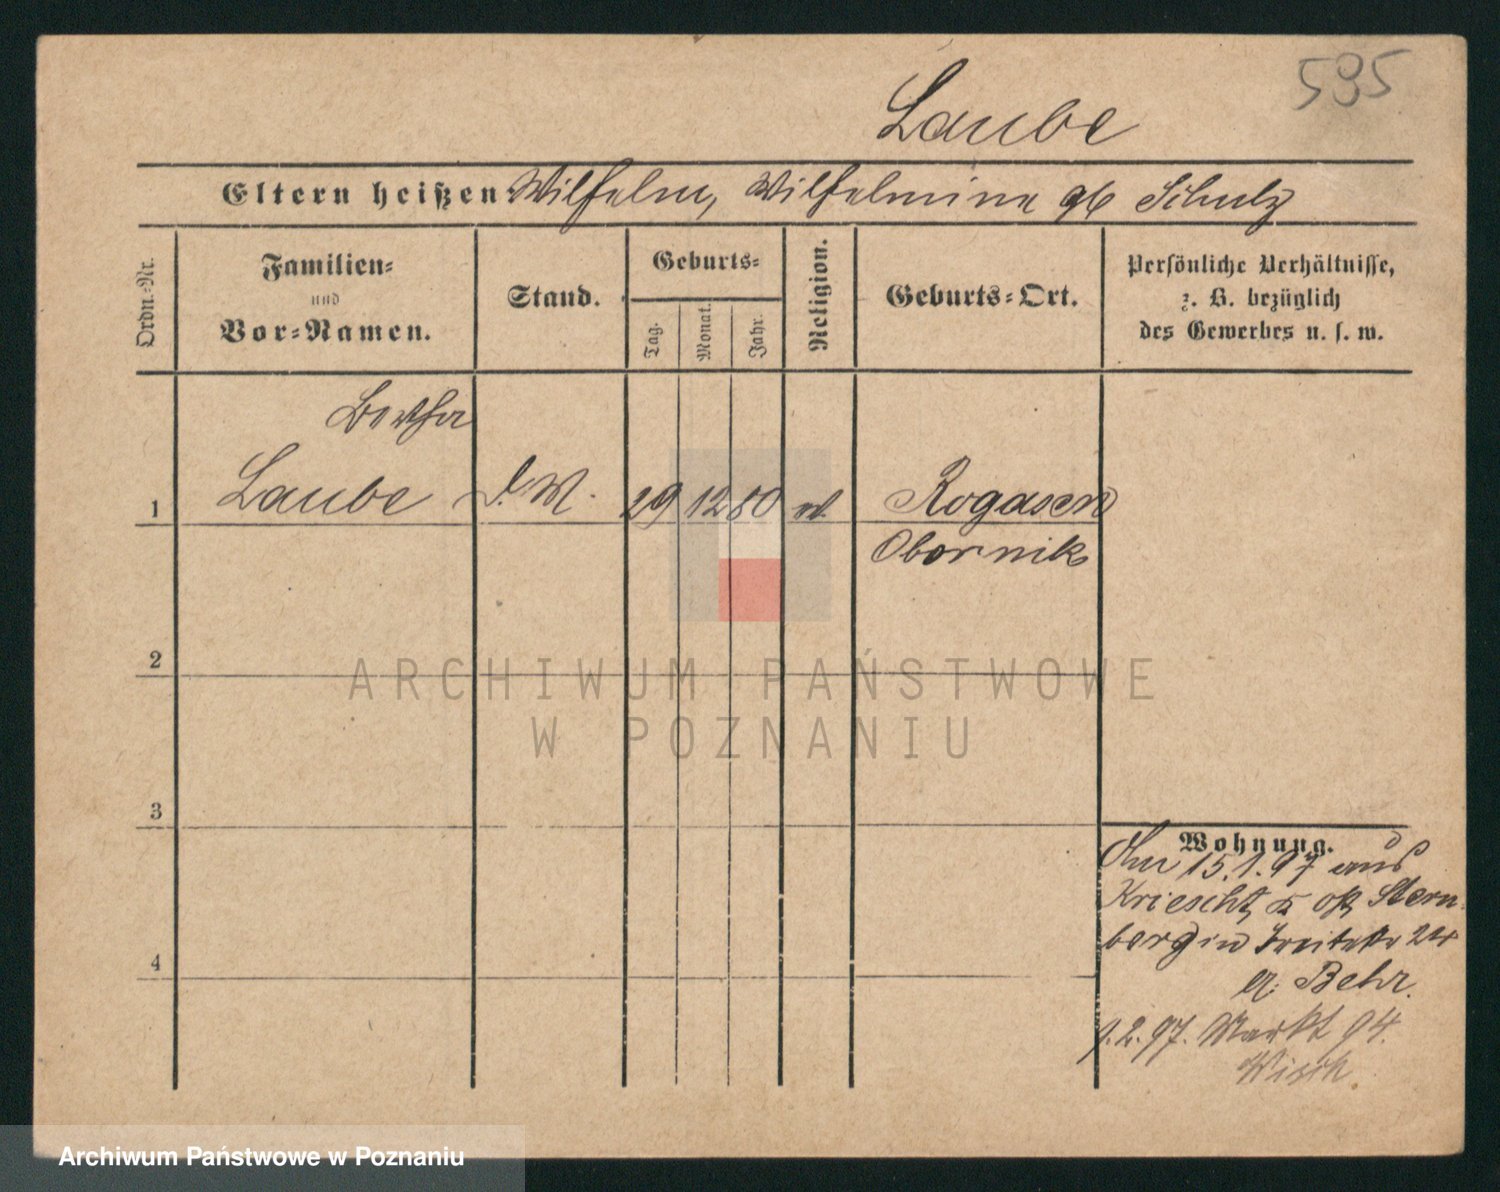 595
Laube
Eltern heißen: Wilhelm, Wilhelmine gb Schulz
Ordn.-Nr.
Familien-
und
Vor-Namen.
Stand.
Geburts-
Tag.
Monat.
Jahr.
Religion.
Geburts-Ort.
Persönliche Verhältnisse,
z. B. bezüglich
des Gewerbes u. s. w.
Bertha
1 Laube D. M. 29 12 80 ev. Rogasen
Obornik
2
3
4
Wohnung.
Am 15.1.97 aus
Kriescht, Ostern
berg in
b. Behr.
1.2.97. Markt 94.
ARCHIWUM PAŃSTWOWE
W POZNANIU
Archiwum Państwowe w Poznaniu